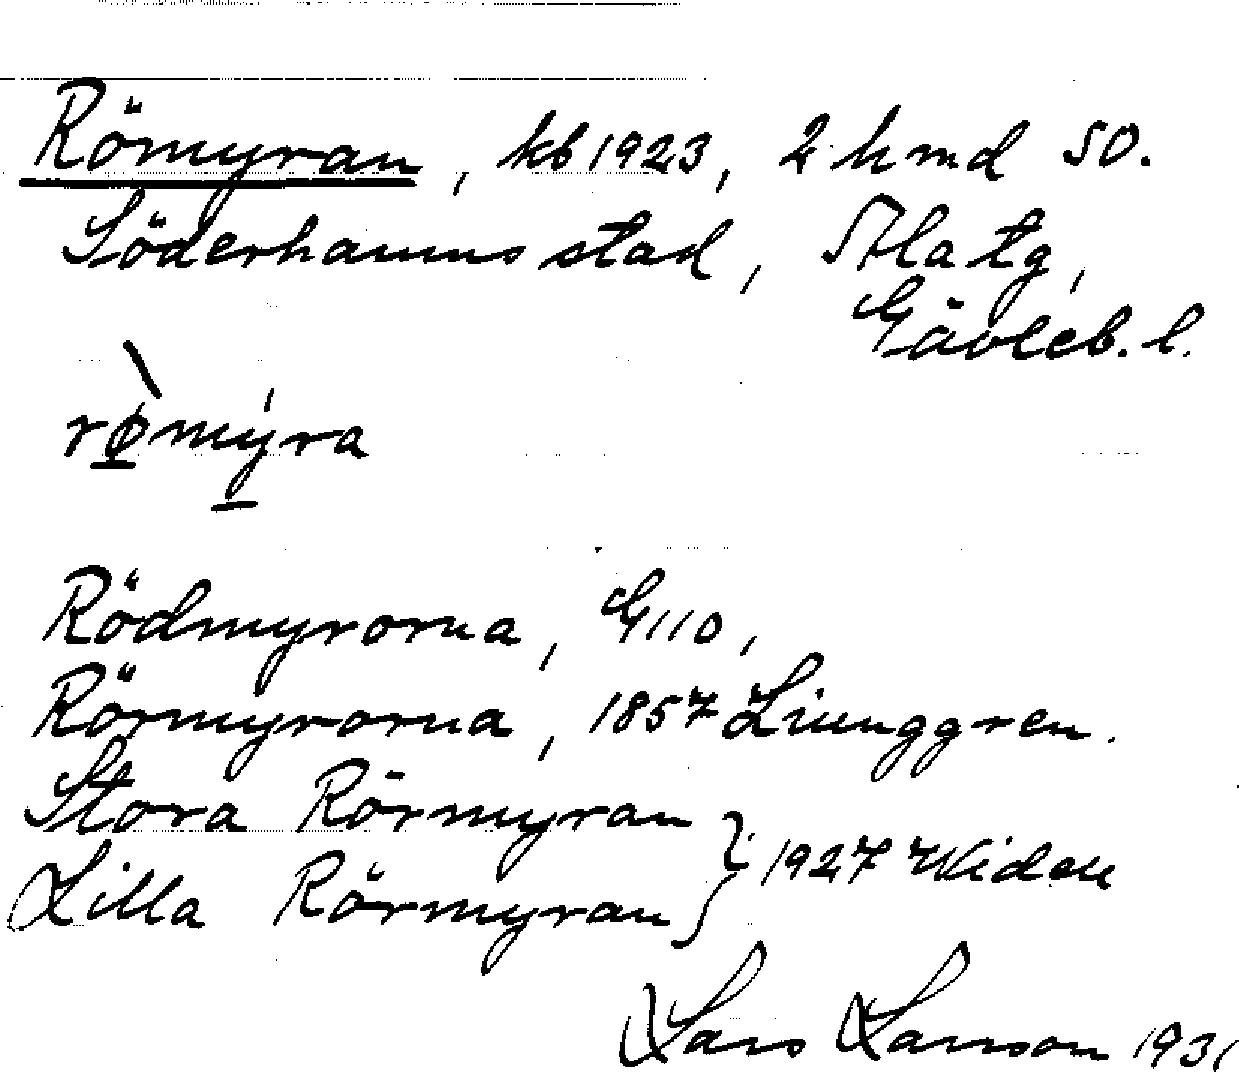 Römyran, kb 1923, 2 hmd 50.
Söderhamns stad, Ala tg,
Gävleb. l.
rø̀mýra
Rödmyrorna, G110,
Rörmyrorna, 1857 Liunggren.
Stora Rörmyran
Lilla Rörmyran } 1927 Widen
Lars Larsson 1931